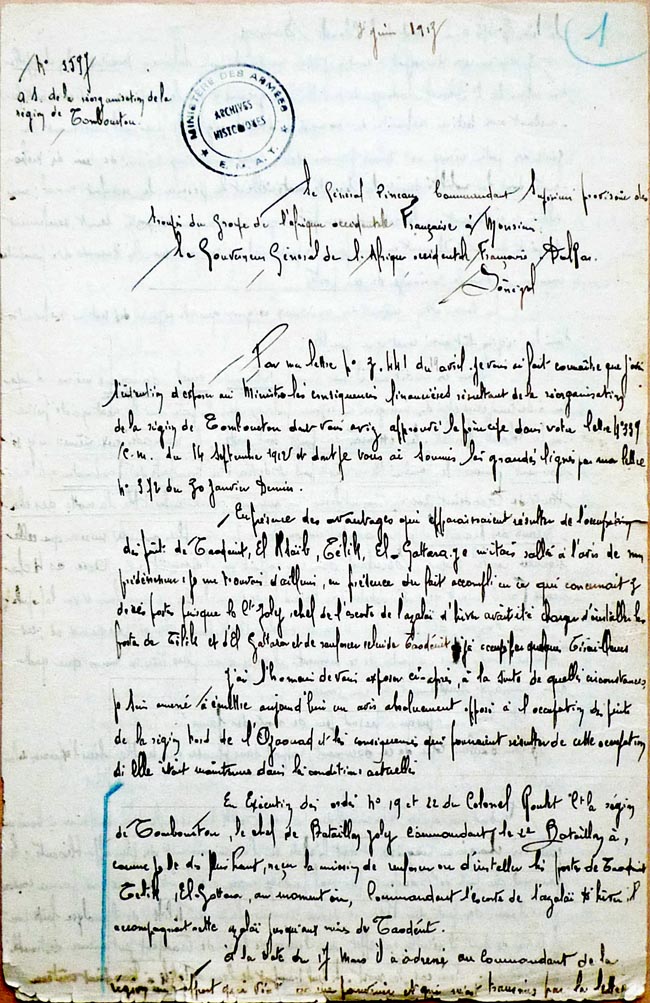 juin 1913
1
N° 2597
a. s. de la réorganisation de la
région de Tombouctou
MINISTÈRE DES ARMÉES
ARCHIVES
HISTORIQUES
E. M. A. T.
Le Général Pineau Commandant Supérieur provisoire des
troupes du Groupe de l'Afrique occidentale Française à Monsieur
le Gouverneur Général de l'Afrique occidentale Française Dakar.
Sénégal
Par ma lettre n° 441 du avril je vous ai fait connaître que j'avais
l'intention d'exposer au Ministre les conséquences financières résultant de la réorganisation
de la région de Tombouctou dont vous avez approuvé le principe dans votre lettre N° 339
C. M. du 14 septembre 1912 et dont je vous ai soumis les grandes lignes par ma lettre
n° 372 du 30 Janvier Dernier.
En présence des avantages qui apparaissaient résulter de l'occupation
des puits de Taodenit, El Khaïb, Tilik, El Gattara je m'étais rallié à l'avis de mon
prédécesseur je me trouvais d'ailleurs, en présence du fait accompli en ce qui concernait 3
de ces postes puisque le Ct Joly, chef de l'escorte de l'azalaï d'hiver avait été chargé d'installer les
postes de Tilik et d'El Gattara et de renforcer celui de Taodenit déjà occupé par quelques Tirailleurs
J'ai l'honneur de vous exposer ci-après, à la suite de quelles circonstances
je suis amené à émettre aujourd'hui un avis absolument opposé à l'occupation des puits
de la région nord de l'Azaouad et les conséquences qui pourraient résulter de cette occupation
si elle était maintenue dans les conditions actuelles
En Exécution des ordres N° 19 et 22 du Colonel Ct la région
de Tombouctou, le chef de Bataillon Joly Commandant le 2e Bataillon a,
comme je le dis plus haut, reçu la mission de renforcer ou d'installer les postes de Taodenit
Tilik, El-Gattara, au moment où, Commandant l'escorte de l'azalaï d'hiver il
accompagnait cette azalaï jusqu'aux mines de Taodenit.
à la date du 17 Mars il a adressé au Commandant de la
région un rapport qui et qui m'est transmis par la lettre